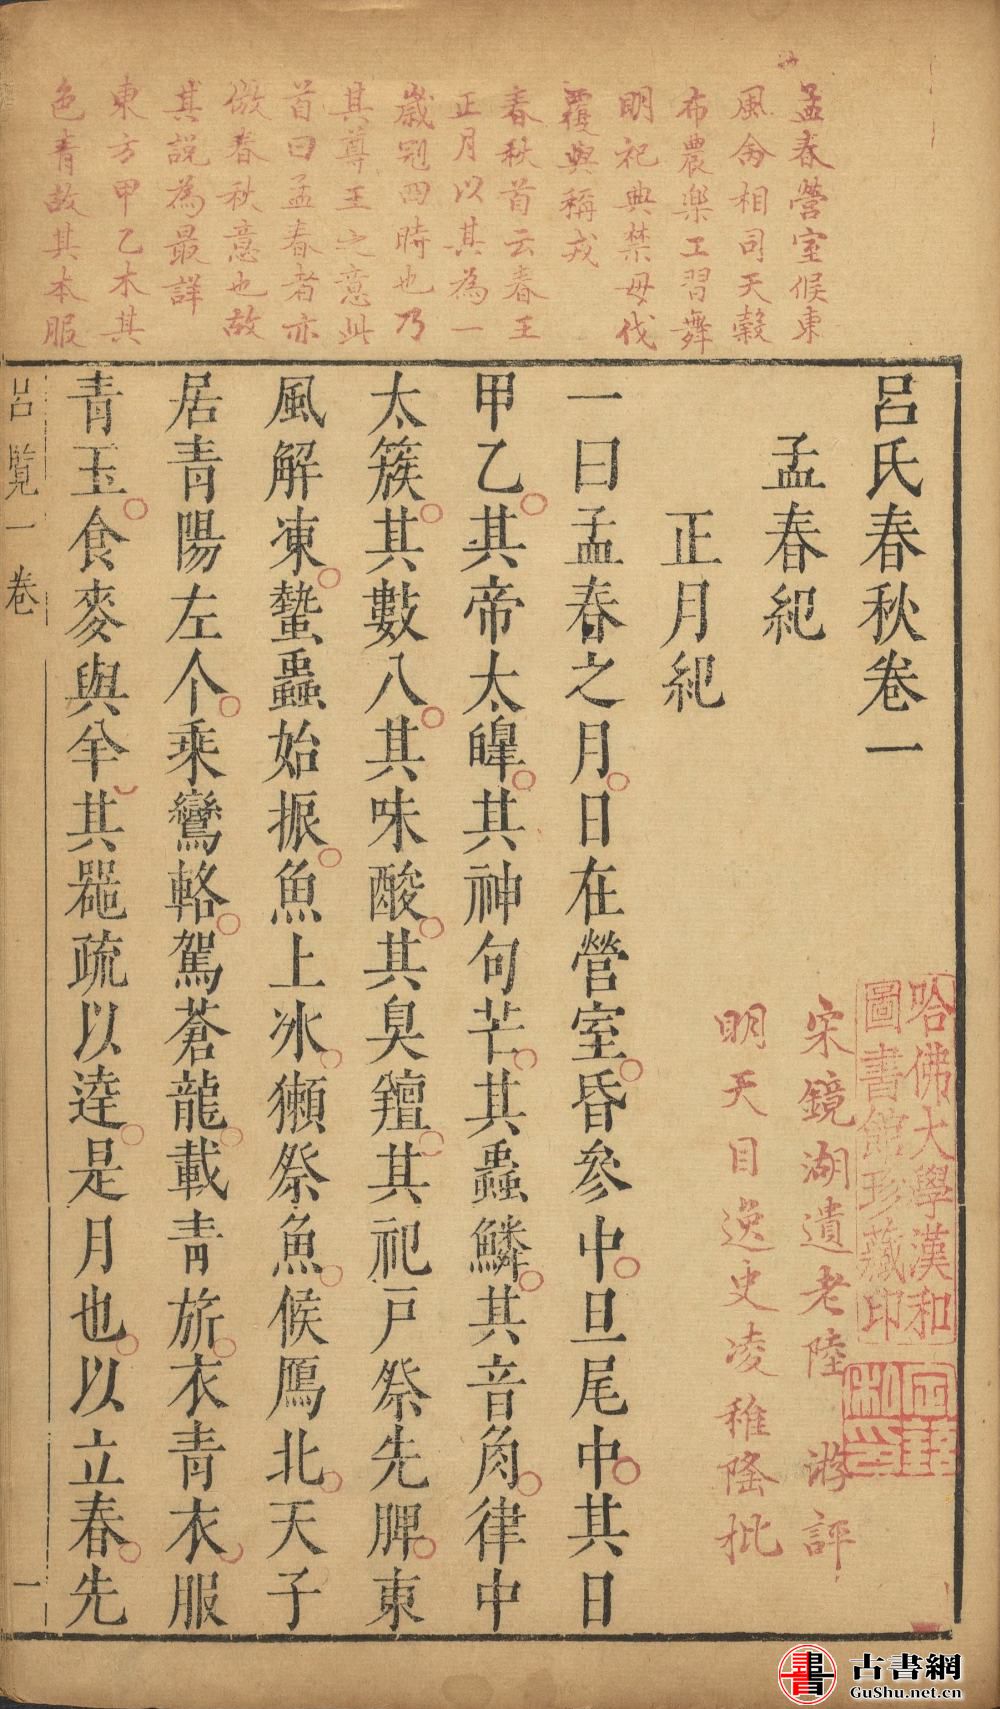 孟春營室候東
風禽相司天穀
布農樂工習舞
明祀典禁母伐
覆與稱戎
春秋首云春王
正月以其為一
歲冠四時也乃
其尊王之意此
首曰孟春者亦
倣春秋意也故
其説為最詳
東方甲乙木其
色青故其本服
呂氏春秋卷一
孟春紀
宋鏡湖遺老陸游評
正月紀
明天目逸史凌稚隆批
一曰孟春之月日在營室昏參中旦尾中其日
甲乙其帝太皞其神句芒其蟲鱗其音角律中
太簇其數八其味酸其臭羶其祀戸祭先脾東
風解凍蟄蟲始振魚上冰獺祭魚候鴈北天子
居青陽左个乘鸞輅駕蒼龍載青旂衣青衣服
青玉食麥與羊其器疏以達是月也以立春先
呂覽一卷
一
哈佛大學漢和
圖書館珍藏印
古書網
GuShu.net.cn